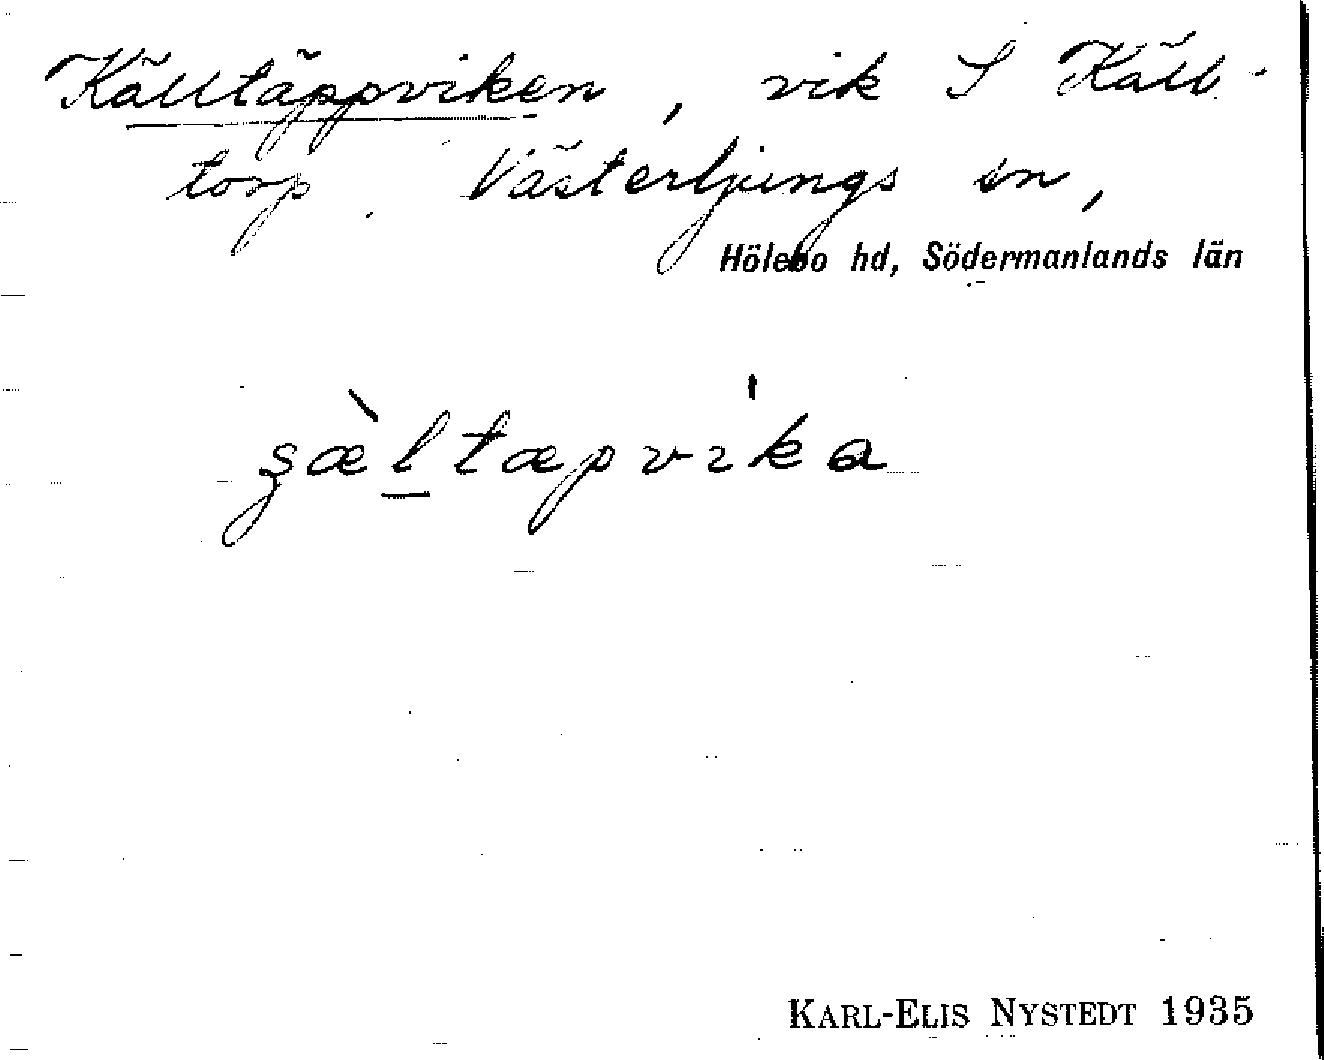 Källtäppviken, vik S Käll-
torp. Västerljungs sn,
Hölebo hd, Södermanlands län
ʂæ̀ltæpvi'ka
KARL-ELIS NYSTEDT 1935